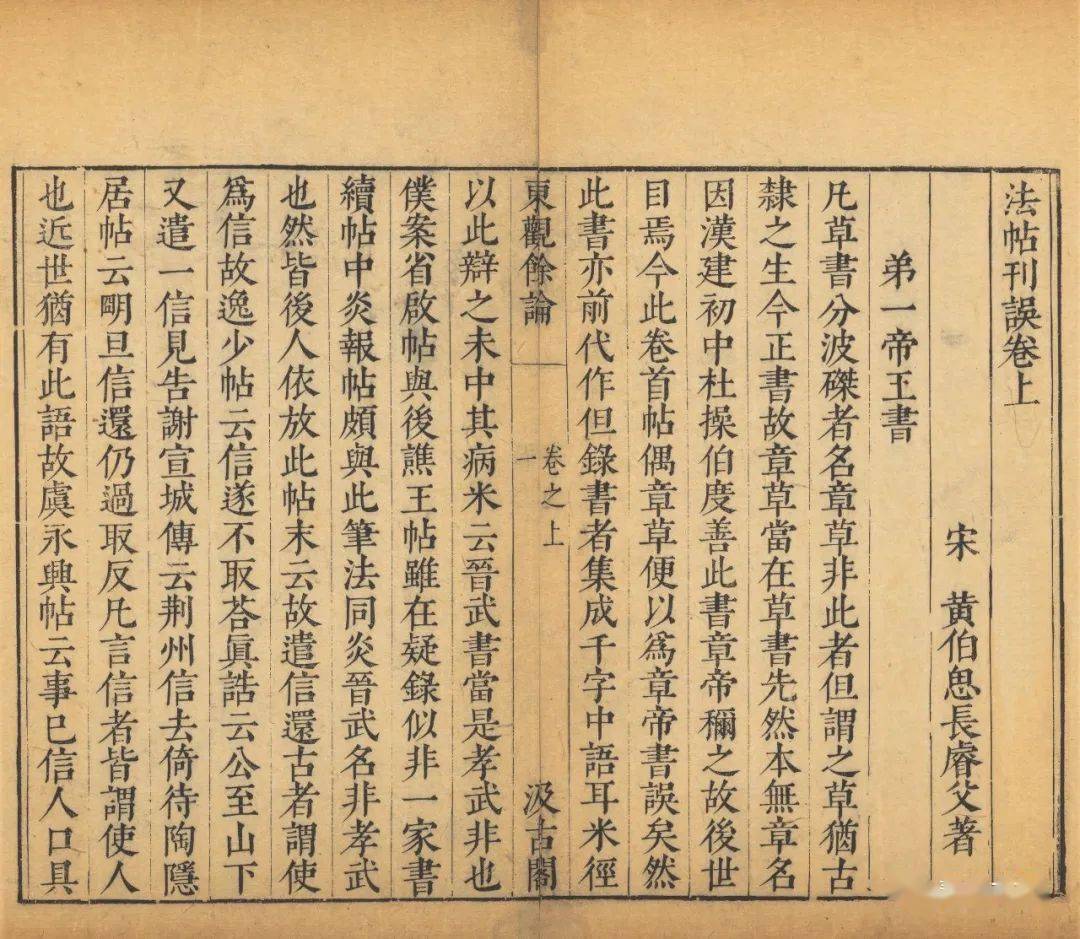 法帖刊誤卷上
宋 黃伯思長睿父著
弟一帝王書
凡草書分波磔者名章草非此者但謂之草猶古
隸之生今正書故章草當在草書先然本無章名
因漢建初中杜操伯度善此書章帝稱之故後世
目焉今此卷首帖偶章草便以為章帝書誤矣然
此書亦前代作但錄書者集成千字中語耳米徑
東觀餘論 卷之上 一 汲古閣
以此辯之未中其病米云晉武書當是孝武非也
僕案省啟帖與後譙王帖雖在疑錄似非一家書
續帖中炎報帖頗與此筆法同炎晉武名非孝武
也然皆後人依放此帖末云故遣信還古者謂使
爲信故逸少帖云信遂不取荅眞誥云公至山下
又遣一信見告謝宣城傳云荆州信去倚待陶隱
居帖云明旦信還仍過取反凡言信者皆謂使人
也近世猶有此語故虞永興帖云事已信人口具